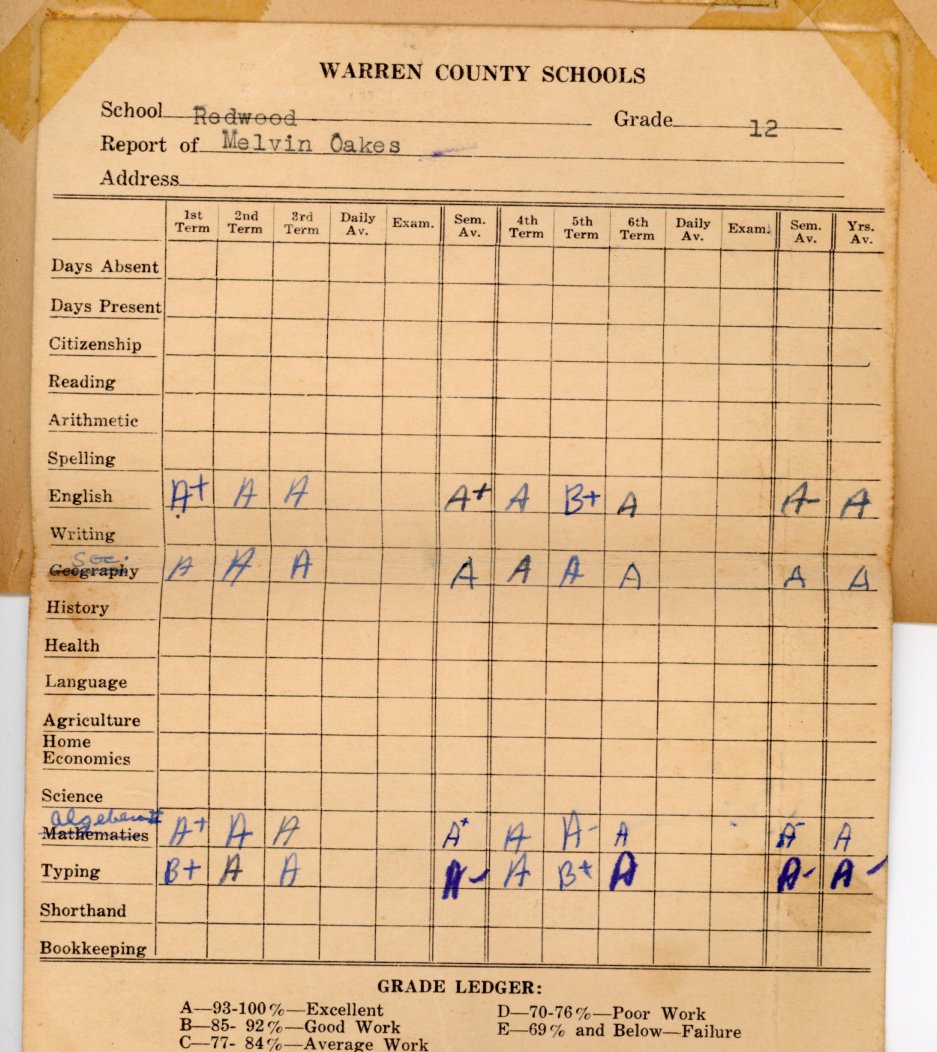 WARREN COUNTY SCHOOLS
School Redwood Grade 12
Report of Melvin Oakes
Address
1st Term 2nd Term 3rd Term Daily Av. Exam. Sem. Av. 4th Term 5th Term 6th Term Daily Av. Exam. Sem. Av. Yrs. Av.
Days Absent
Days Present
Citizenship
Reading
Arithmetic
Spelling
English A+ A A A+ A B+ A A- A
Writing
Soc.
Geography A A A A A A A A A
History
Health
Language
Agriculture
Home
Economics
Science
algebra II
Mathematics A+ A A A+ A A- A A- A
Typing B+ A A A- A B+ A A- A-
Shorthand
Bookkeeping
GRADE LEDGER:
A—93-100%—Excellent D—70-76%—Poor Work
B—85- 92%—Good Work E—69% and Below—Failure
C—77- 84%—Average Work